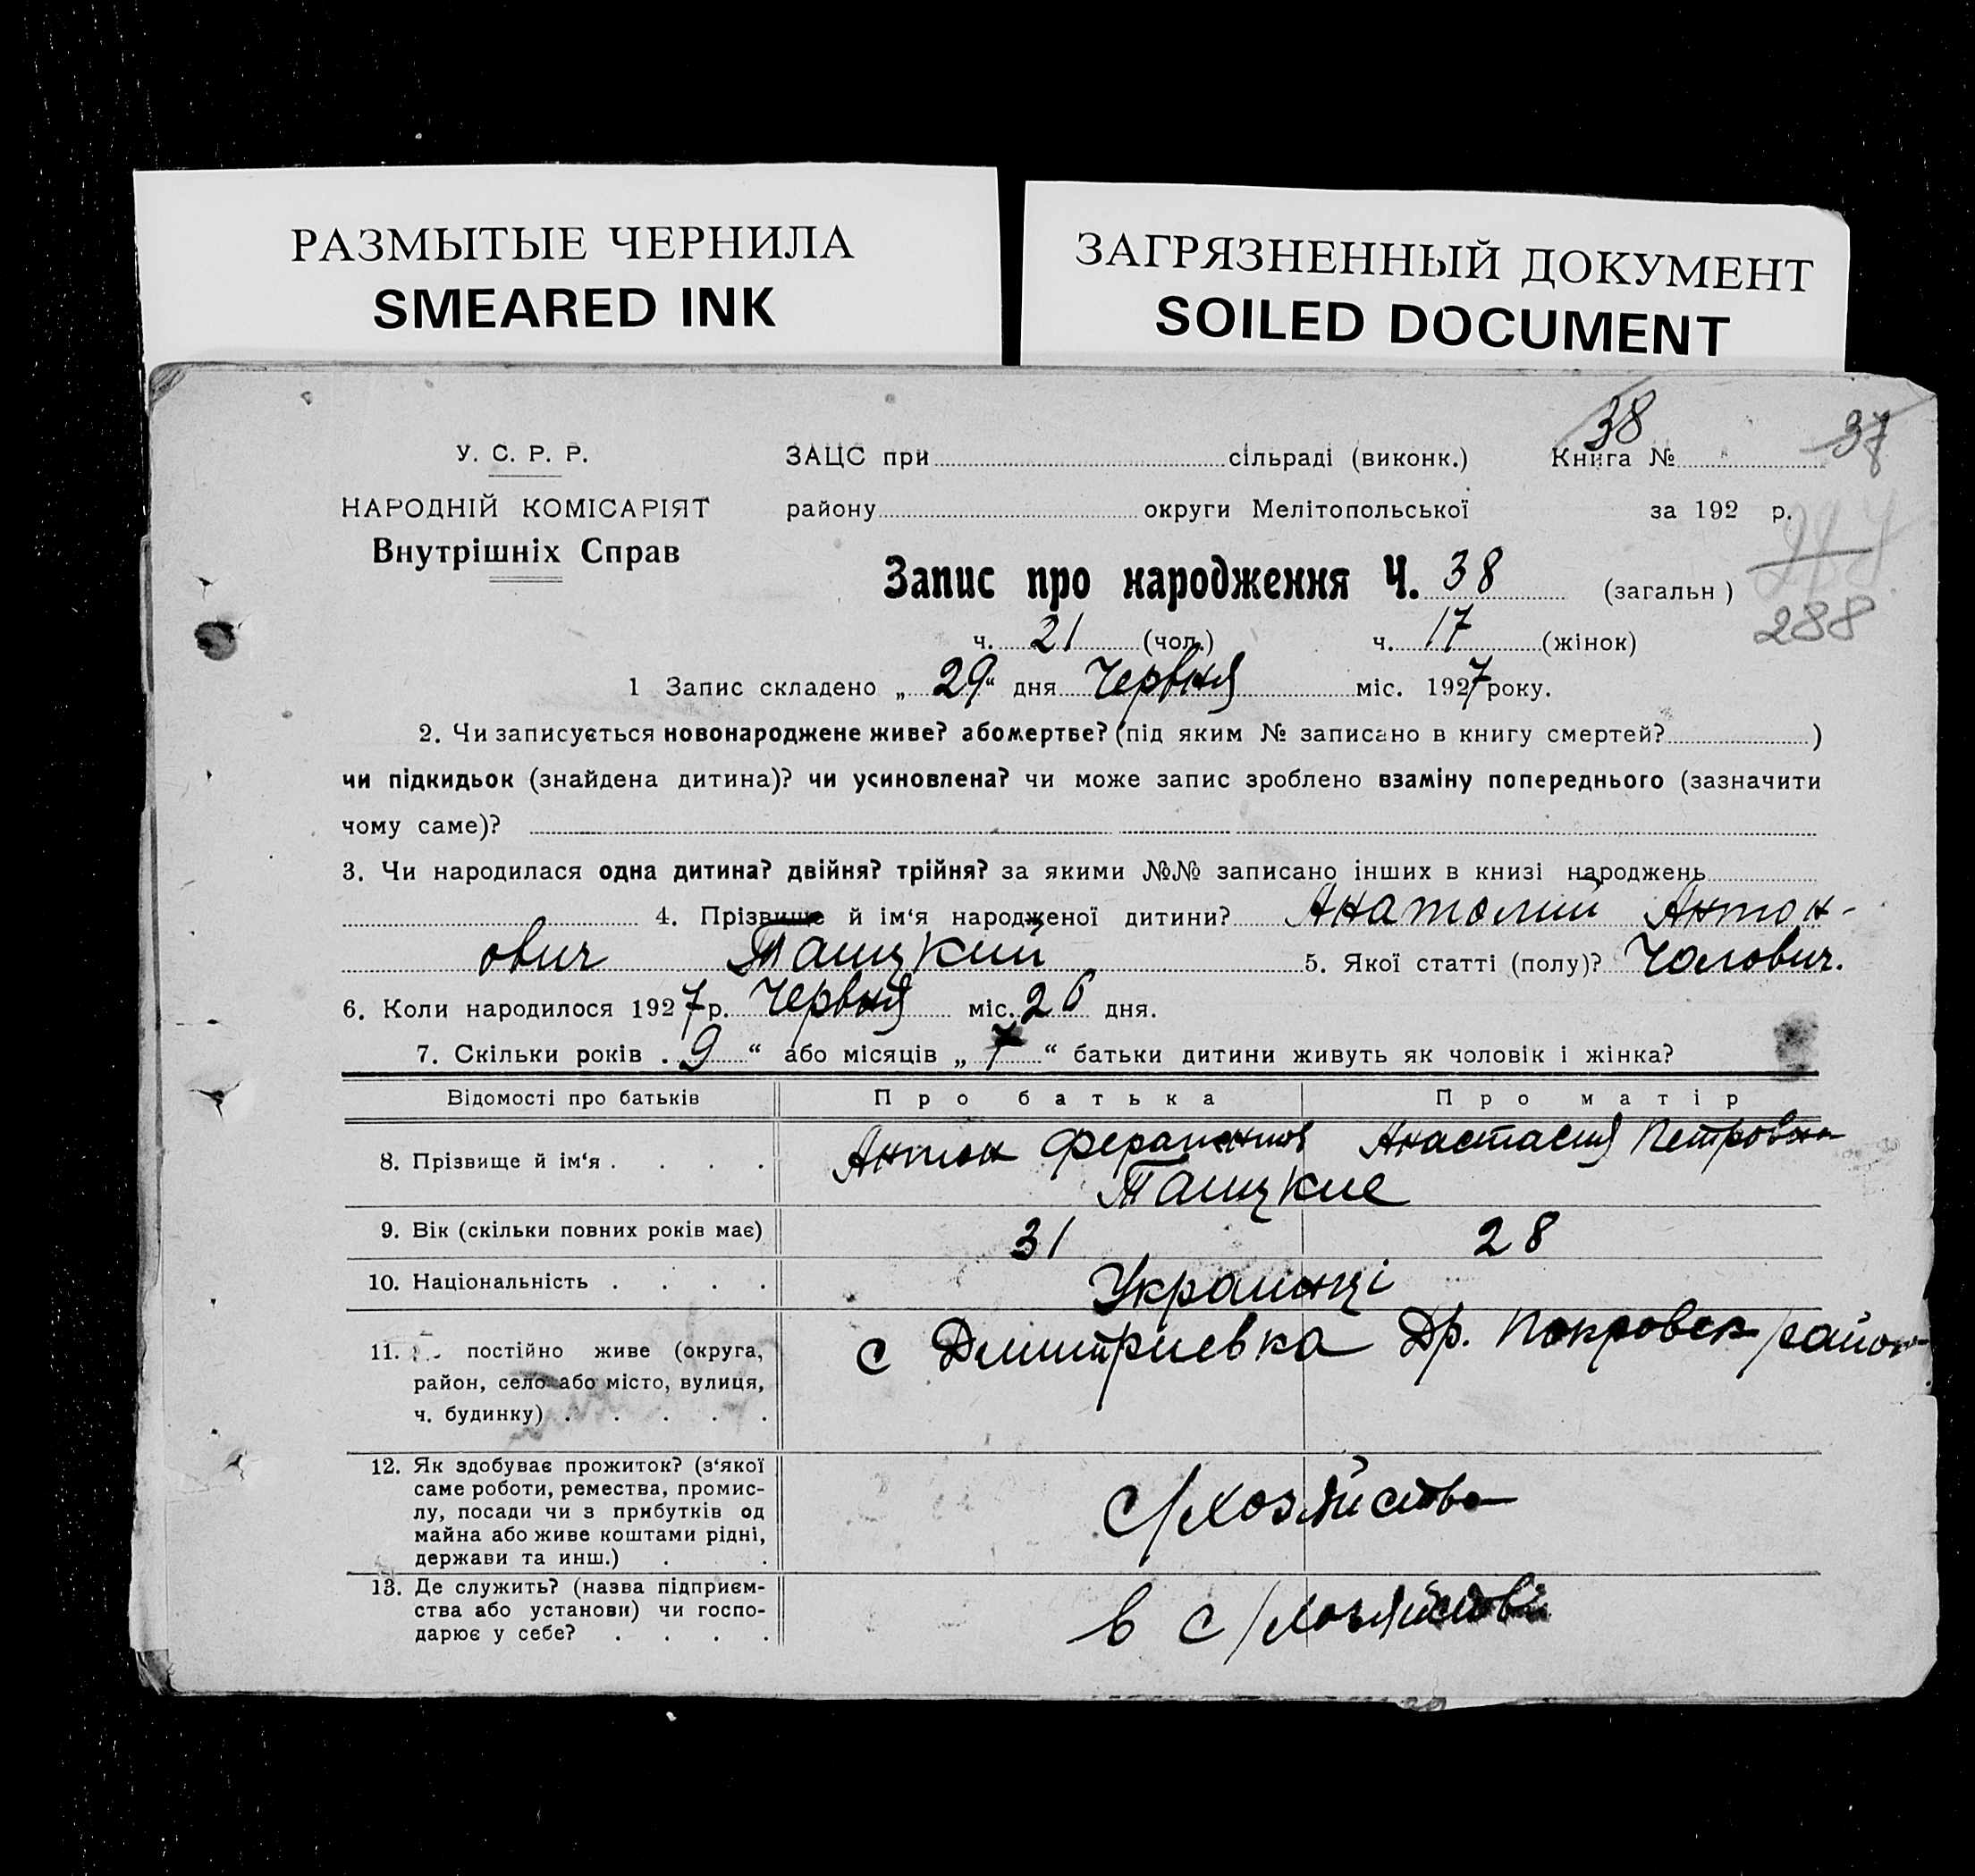 РАЗМЫТЫЕ ЧЕРНИЛА
SMEARED INK
ЗАГРЯЗНЕННЫЙ ДОКУМЕНТ
SOILED DOCUMENT
38
37
У. С. Р. Р.
ЗАЦС при сільраді (виконк.) Книга №
НАРОДНІЙ КОМІСАРІЯТ
району округи Мелітопольської за 192 р.
Внутрішніх Справ
Запис про народження Ч. 38 (загальн)
288
ч. 21 (чол.) ч. 17 (жінок)
1 Запис складено „ 29 “ дня Червня міс. 1927 року.
2. Чи записується новонароджене живе? або мертве? (під яким № записано в книгу смертей? )
чи підкидьок (знайдена дитина)? чи усиновлена? чи може запис зроблено взаміну попереднього (зазначити
чому саме)?
3. Чи народилася одна дитина? двійня? трійня? за якими №№ записано інших в книзі народжень
4. Прізвище й ім‘я народженої дитини? Анатолий Антон-
ович Таицкий 5. Якої статті (полу)? Чолович.
6. Коли народилося 1927 р. Червня міс. 26 дня.
7. Скільки років . 9 “ або місяців „ 7 “ батьки дитини живуть як чоловік і жінка?
Відомості про батьків Про батька Про матір
8. Прізвище й ім‘я . . . . Антон Анастасия Петровна
Таицкие
9. Вік (скільки повних років має) 31 28
10. Національність . . . . Украинці
11. постійно живе (округа, с Дмитриевка Др. Покровск/район
район, село або місто, вулиця,
ч. будинку) . . . . .
12. Як здобуває прожиток? (з‘якої
саме роботи, ремества, промис-
лу, посади чи з прибутків од
майна або живе коштами рідні,
держави та инш.) . .
с/хозяйство
13. Де служить? (назва підприєм-
ства або установи) чи госпо-
дарює у себе? . . . .
в с/хозяйстві